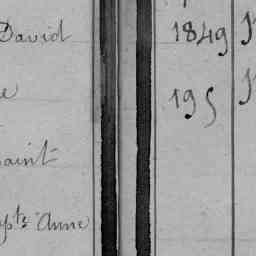 David 1849
e 195
aint
pte Anne